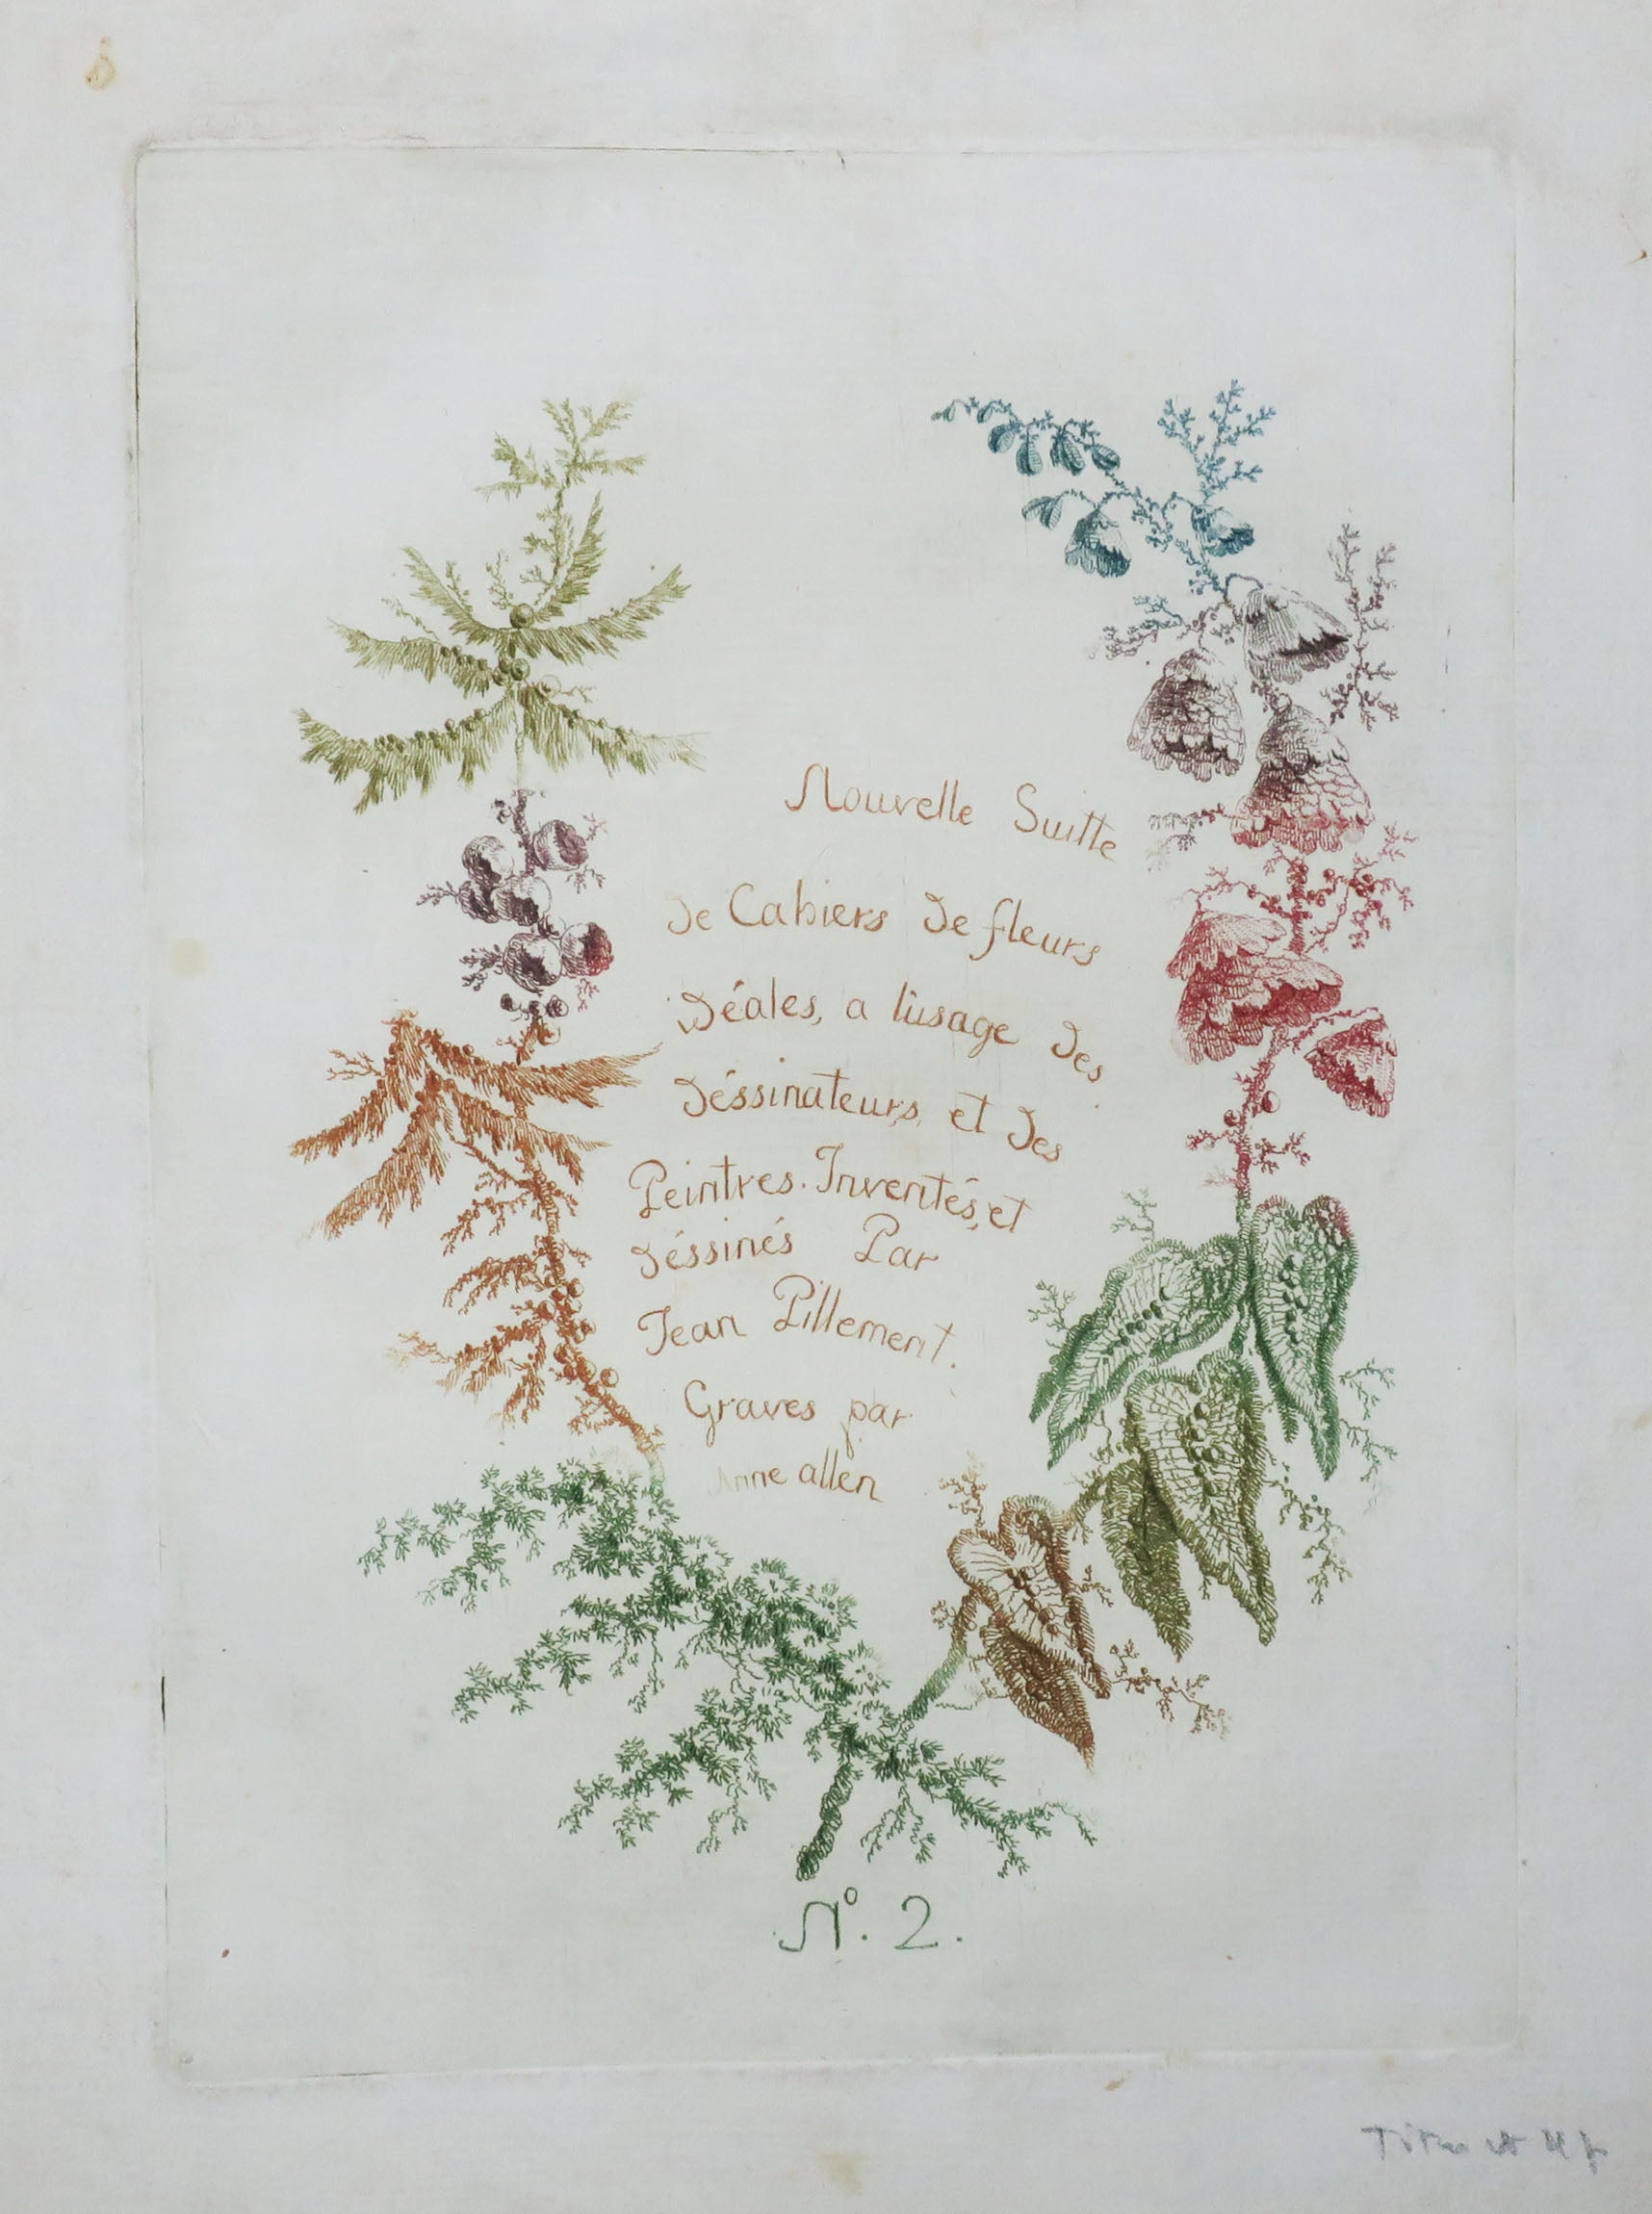 Nouvelle Suitte
de Cahiers de fleurs
idéales, a l'usage des
déssinateurs, et des
Peintres. Inventés, et
déssinés Par
Jean Pillement.
Graves par
Anne allen
No. 2.